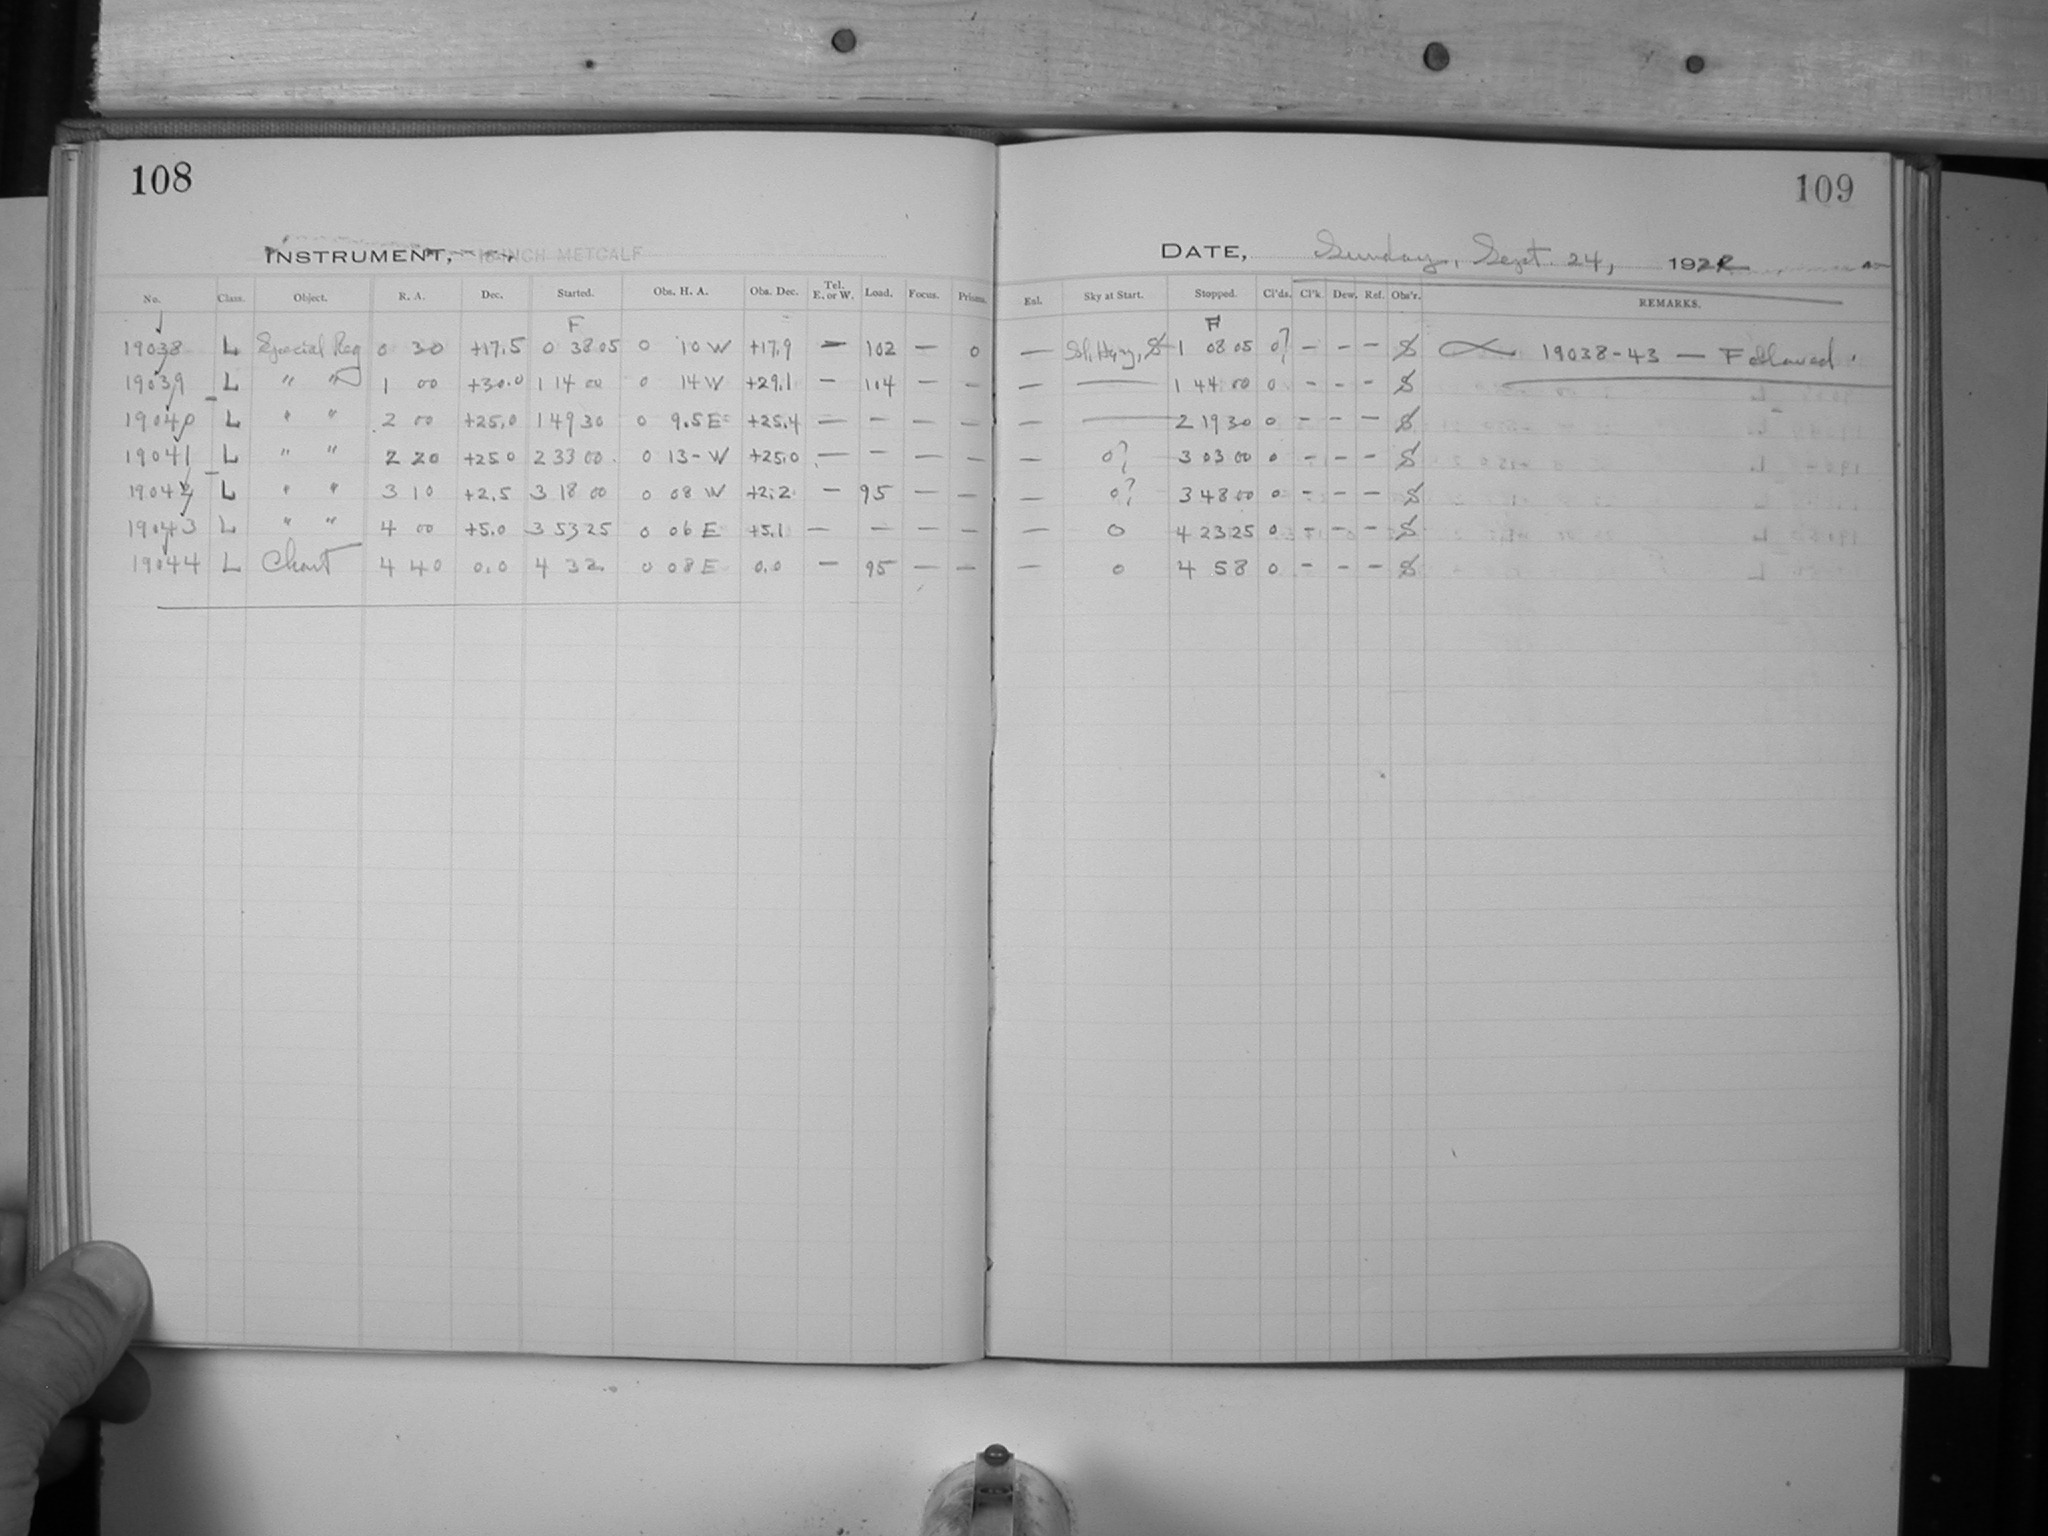 108
INSTRUMENT, 16-INCH METCALF
No. Class. Object. R. A. Dec. Started. Obs. H. A. Obs. Dec. Tel. E. or W. Load. Focus. Prisms.
F
19038 L Special Reg 0 30 +17.5 0 38 05 0 10 W +17.9 — 102 — 0
19039 L " " 1 00 +30.0 1 14 00 0 14 W +29.1 — 104 — —
19040 L " " 2 00 +25.0 1 49 30 0 9.5 E +25.4 — — — —
19041 L " " 2 20 +25.0 2 33 00 0 13- W +25.0 — — — —
19042 L " " 3 10 +2.5 3 18 00 0 08 W +2.2 — 95 — —
19043 L " " 4 00 +5.0 3 53 25 0 06 E +5.1 — — — —
19044 L Chart 4 40 0.0 4 32 0 08 E 0.0 — 95 — —
109
DATE, Sunday, Sept. 24, 1922
Enl. Sky at Start. Stopped. Cl'ds. Cl'k. Dew. Ref. Obs'r. REMARKS.
F
— 1 08 05 0? — — — S 19038-43 — Followed.
— — 1 44 00 0 — — — S
— — 2 19 30 0 — — — S
— 0? 3 03 00 0 — — — S
— 0? 3 48 00 0 — — — S
— 0 4 23 25 0 — — — S
— 0 4 58 0 — — — S